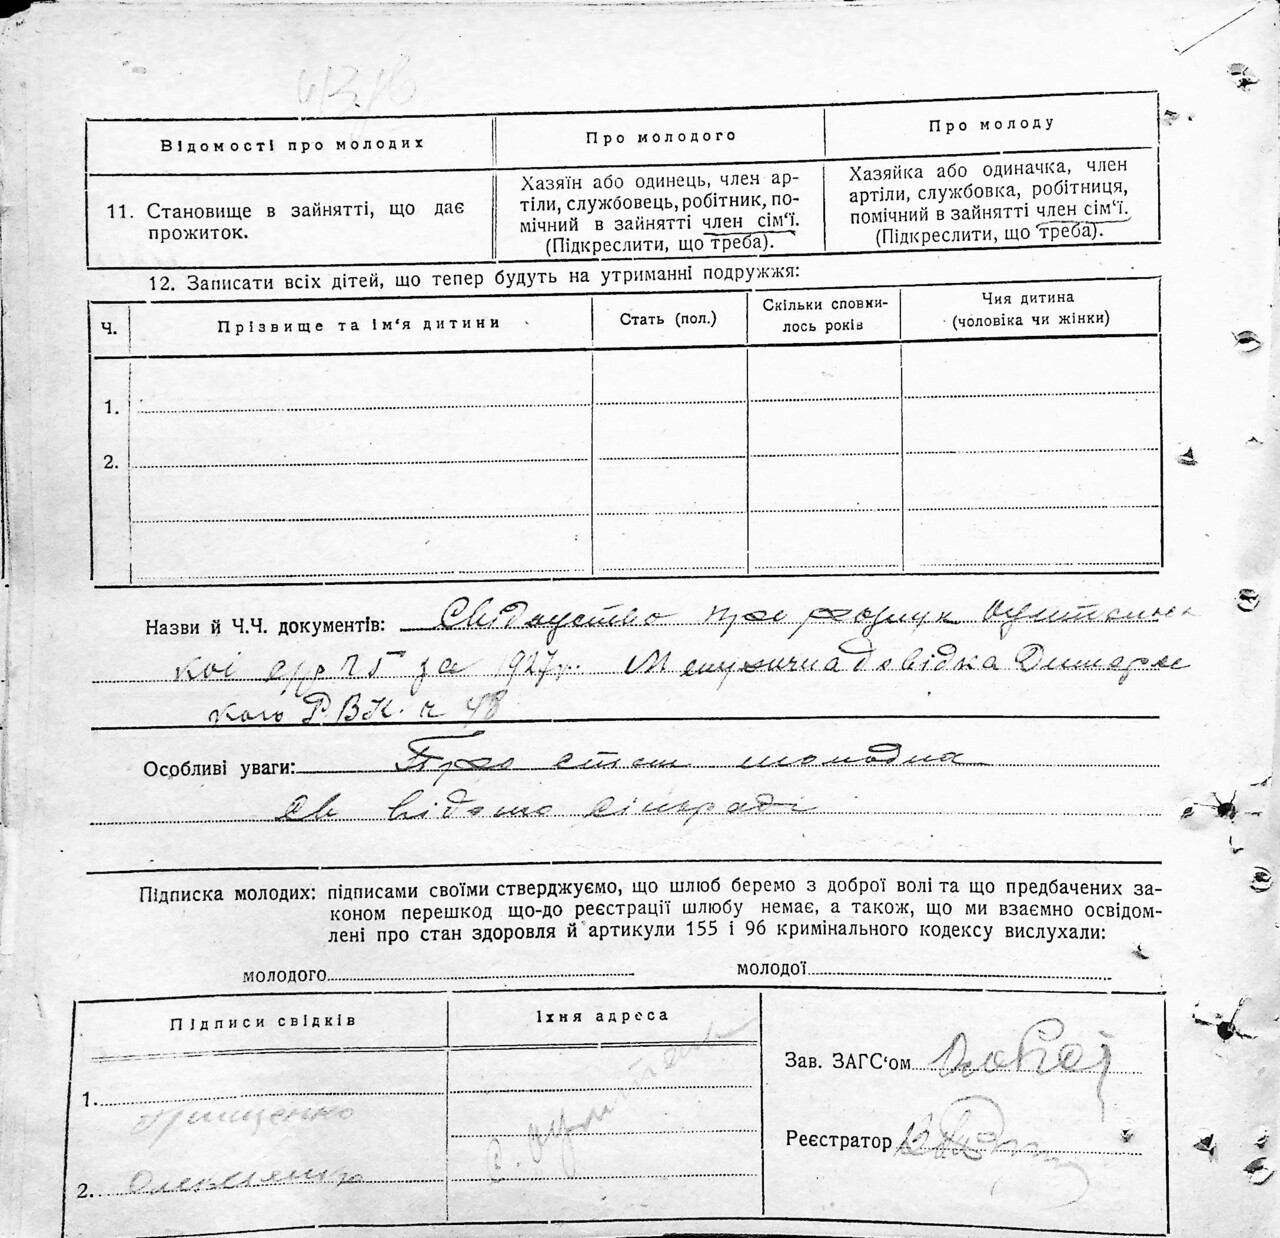 Відомості про молодих
Про молодого
Про молоду
11. Становище в зайнятті, що дає
прожиток.
Хазяїн або одинець, член ар-
тіли, службовець, робітник, по-
мічний в зайнятті член сім‘ї.
(Підкреслити, що треба).
Хазяйка або одиначка, член
артіли, службовка, робітниця,
помічний в зайнятті член сім‘ї.
(Підкреслити, що треба).
12. Записати всіх дітей, що тепер будуть на утриманні подружжя:
Ч.
Прізвище та ім‘я дитини
Стать (пол.)
Скільки сповни-
лось років
Чия дитина
(чоловіка чи жінки)
1.
2.
Назви й Ч.Ч. документів: Свідоцтво про
за 1927 р. довідка
кого Р.В.К. ч 48
Особливі уваги: Про стан
Підписка молодих: підписами своїми стверджуємо, що шлюб беремо з доброї волі та що предбачених за-
коном перешкод що-до реєстрації шлюбу немає, а також, що ми взаємно освідом-
лені про стан здоровля й артикули 155 і 96 кримінального кодексу вислухали:
молодого
молодої
Підписи свідків
Їхня адреса
1. Грищенко
2.
с.
Зав. ЗАГС‘ом
Реєстратор